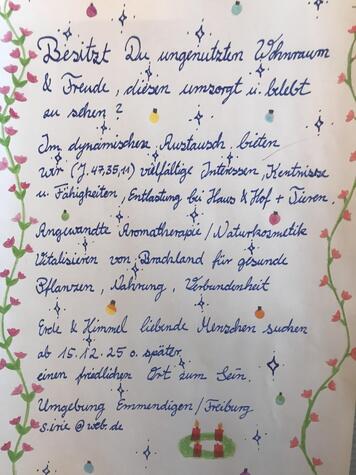 Besitzt Du ungenutzten Wohnraum
& Freude, diesen umsorgt u. belebt
zu sehen?
Im dynamischen Austausch bieten
wir (J. 47, 35, 11) vielfältige Interessen, Kentnisse
u. Fähigkeiten, Entlastung bei Haus & Hof + Tieren.
Angewandte Aromatherapie / Naturkosmetik
Vitalisieren von Brachland für gesunde
Pflanzen, Nahrung, Verbundenheit
Erde & Himmel liebende Menschen suchen
ab 15.12.25 o. später
einen friedlichen Ort zum Sein.
Umgebung Emmendigen / Freiburg
s.irie@web.de